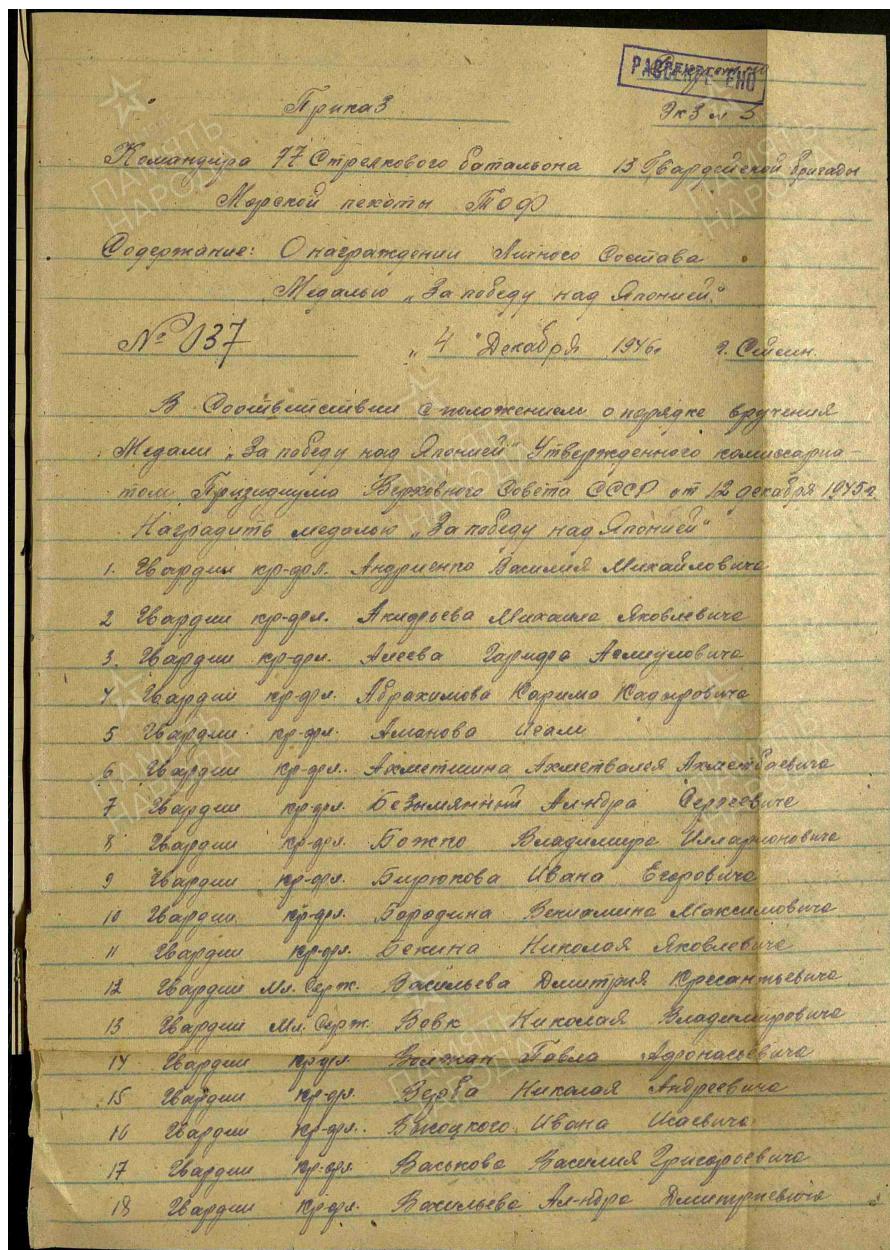 РАССЕКРЕЧЕНО
Приказ
Экз № 3
Командира 77 Стрелкового батальона 13 Гвардейской бригады
Морской пехоты ТОФ
Содержание: О награждении Личного Состава
Медалью „За победу над Японией“
№ 037 „4“ Декабря 1946г г.
В Соответствии с положением о порядке вручения
Медали „За победу над Японией“ Утвержденного комиссариа-
том Призидиума Верховного Совета СССР от 12 декабря 1945г.
Наградить медалью „За победу над Японией“
1. Гвардии кр-фл. Андриенко Василия Михайловича
2 Гвардии кр-фл. Михаила Яковлевича
3. Гвардии кр-фл. Алеева
4 Гвардии кр-фл. Абрахимова Карима Кадыровича
5 Гвардии кр-фл. Аманова Исали
6 Гвардии кр-фл. Ахметшина Ахметвалея Ахметбаевича
7 Гвардии кр-фл. Безымянный Ал-ндра Сергеевича
8 Гвардии кр-фл. Божко Владимира Илларионовича
9 Гвардии кр-фл. Бирюкова Ивана Егоровича
10 Гвардии кр-фл. Бородина Вениамина Максимовича
11 Гвардии кр-фл. Бекина Николая Яковлевича
12 Гвардии Мл. Серж. Васильева Дмитрия Кресантьевича
13 Гвардии Мл. Серж. Вовк Николая Владимировича
14 Гвардии кр-фл. Волжан Павла Афонасьевича
15 Гвардии кр-фл. Верба Николая Андреевича
16 Гвардии кр-фл. Высоцкого Ивана Исаевича
17 Гвардии кр-фл. Васькова Василия Григорьевича
18 Гвардии кр-фл. Васильева Ал-ндра Дмитриевича
ПАМЯТЬ НАРОДА